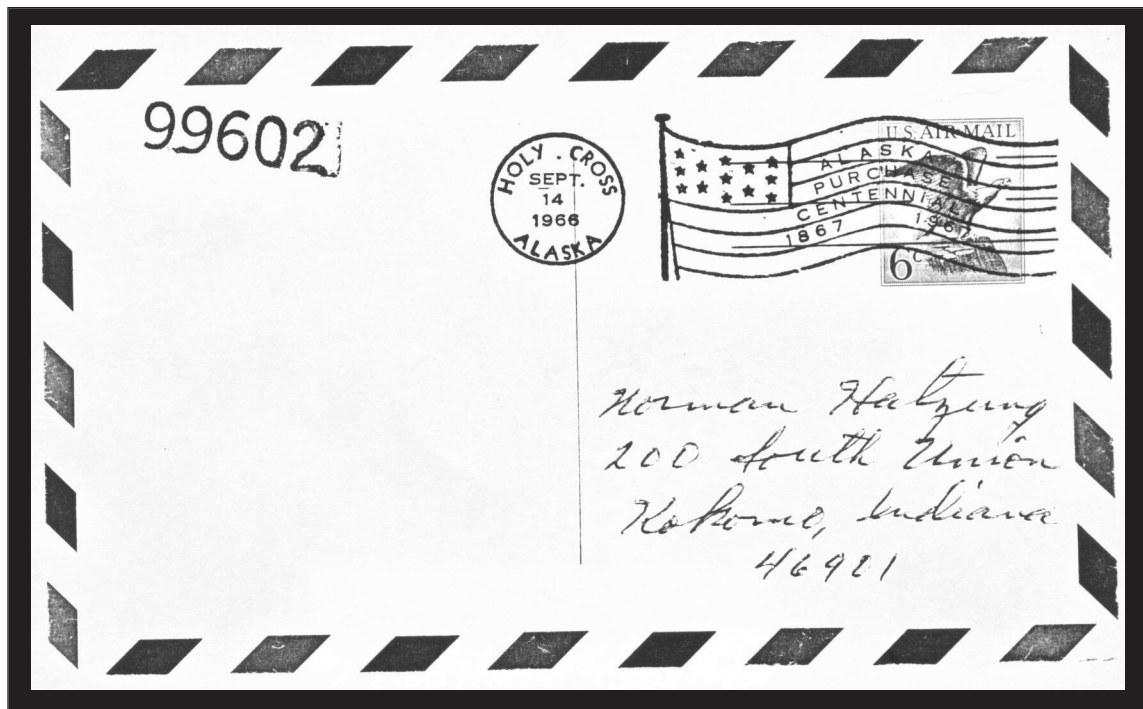 99602
HOLY . CROSS
SEPT.
14
1966
ALASKA
U.S. AIR MAIL
ALASKA
PURCHASE
CENTENNIAL
1867 1967
6c
Norman Hatzung
200 South Union
Kokomo, Indiana
46901